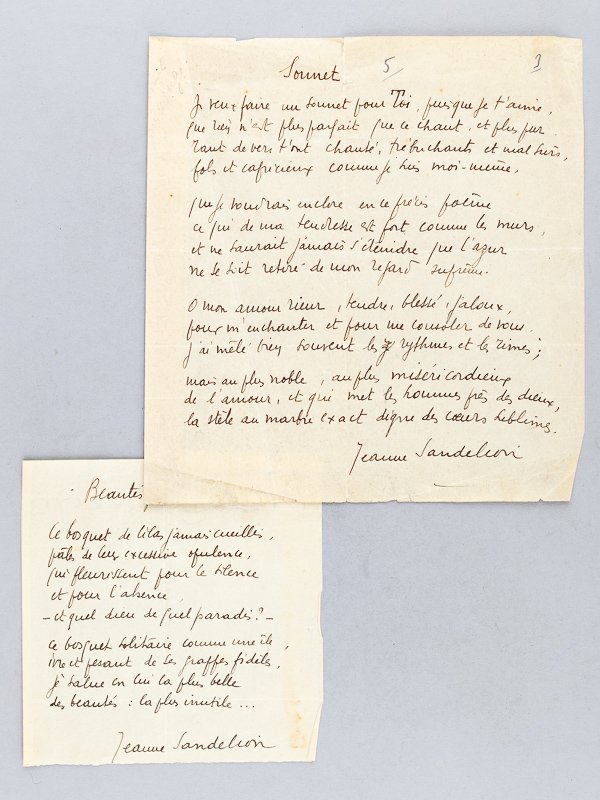 Sonnet 5 1
Je veux faire un sonnet pour Toi, puisque je t'aime,
que rien n'est plus parfait que ce chant, et plus pur.
Tant de vers t'ont chanté, trébuchants et mal sûrs,
fols et capricieux comme je suis moi-même,
que je voudrais enclore en ce précis poème
ce qui de ma tendresse est fort comme les murs,
et ne saurait jamais s'éteindre que l'azur
ne se soit retiré de mon regard suprême.
O mon amour rieur, tendre, blessé, jaloux,
pour m'enchanter et pour me consoler de vous
j'ai mêlé bien souvent les rythmes et les rimes ;
mais au plus noble, au plus miséricordieux
de l'amour, et qui met les hommes près des dieux,
la stèle au marbre exact digne des cœurs sublimes.
Jeanne Sandelion
Beautés
Ce bosquet de lilas jamais cueillis,
pâles de leur excessive opulence,
qui fleurissent pour le silence
et pour l'absence
– et quel dieu de quel paradis ? –
ce bosquet solitaire comme une île,
ivre et pesant de ses grappes fidèles,
je salue en lui la plus belle
des beautés : la plus inutile ...
Jeanne Sandelion